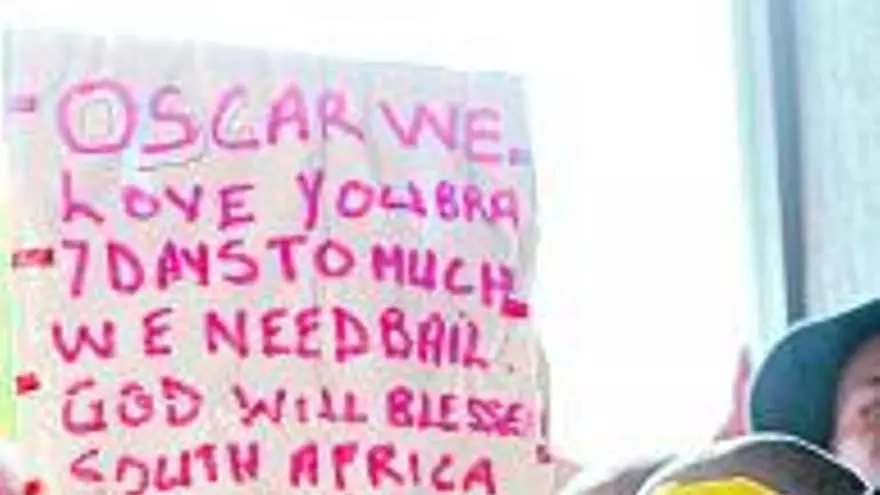 OSCAR WE
LOVE YOU BRA
7 DAYS TO MUCH
WE NEED BAIL.
GOD WILL BLESSE
SOUTH AFRICA